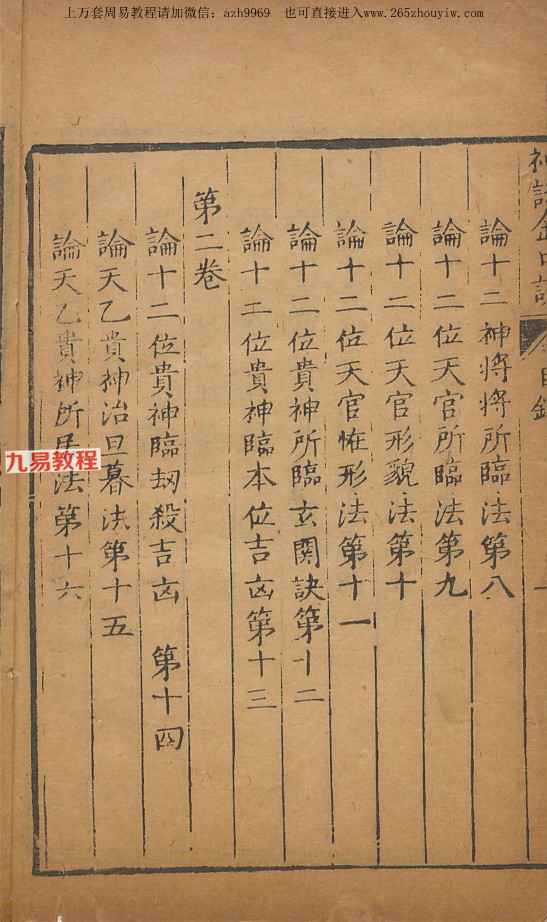 上万套周易教程请加微信：azh9969 也可直接进入www.265zhouyiw.com
論十二神將將所臨法第八
論十二位天官所臨法第九
論十二位天官形貌法第十
論十二位天官恠形法第十一
論十二位貴神所臨玄関訣第十二
論十二位貴神臨本位吉凶第十三
第二卷
論十二位貴神臨刼殺吉凶 第十四
論天乙貴神治旦暮法第十五
論天乙貴神所法第十六
九易教程